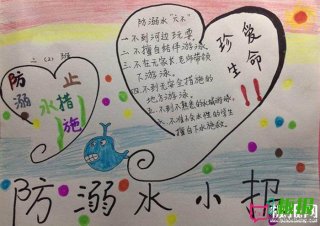 六（2）班
防溺水
防止
水措施
防溺水“六不”
一.不到河边玩耍.
二.不擅自结伴游泳.
三.不在无家长老师带领
下游泳.
四.不到无安全措施的
地方游泳.
五.不到不熟悉的水域游泳.
六.不准不会水性的学生
擅自下水施救.
珍爱
生命
!!
防溺水小报